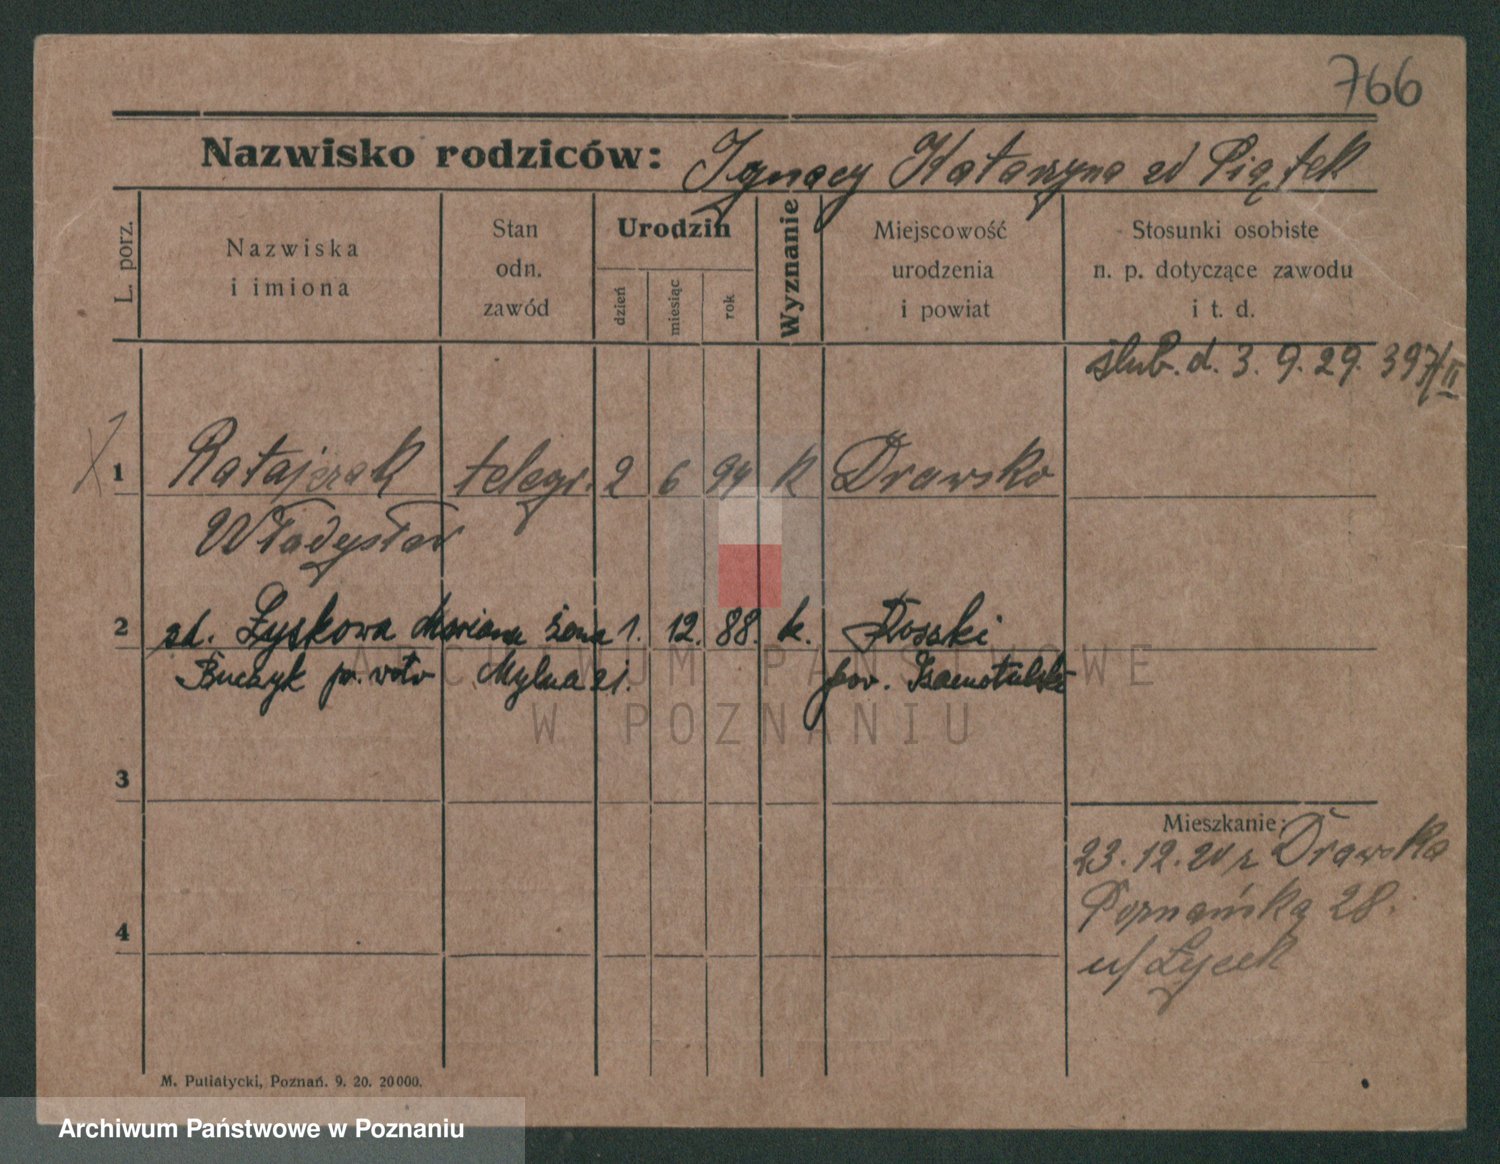 766
Nazwisko rodziców: Ignacy Katarzyna zd Piątek
L. porz.
Nazwiska
i imiona
Stan
odn.
zawód
Urodzin
dzień
miesiąc
rok
Wyznanie
Miejscowość
urodzenia
i powiat
Stosunki osobiste
n. p. dotyczące zawodu
i t. d.
ślub. d. 3. 9. 29. 397/II
1 Ratajczak telegr. 2 6 94 k Drawsko
Władysław
2 zd. Łyskowa Marianna żona 1. 12. 88. k.
Buczyk pr. voto Mylna 21. pow. Szamotulski
3
Mieszkanie:
23.12.20 z Drawska
4 Poznańska 28.
u/ Łycek
M. Putiatycki, Poznań. 9. 20. 20000.
ARCHIWUM PAŃSTWOWE
W POZNANIU
Archiwum Państwowe w Poznaniu